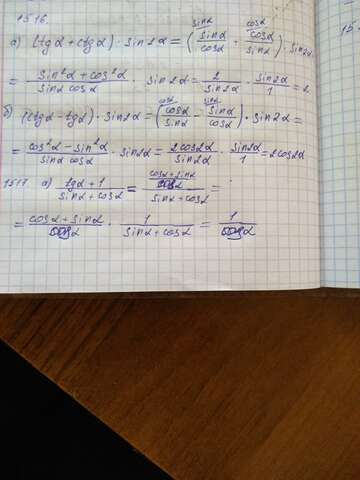 1516
а) (tgα + ctgα) · sin2α = (sinα/cosα · cosα/sinα) · sin2α
= (sin²α + cos²α)/(sinα cosα) · sin2α = 2/sin2α · sin2α/1 = 2
б) (ctgα − tgα) · sin2α = (cosα/sinα − sinα/cosα) · sin2α =
= (cos²α − sin²α)/(sinα cosα) · sin2α = 2cos2α/sin2α · sin2α/1 = 2cos2α
1517 а) (tgα + 1)/(sinα + cosα) = ((cosα + sinα)/cosα)/(sinα + cosα) =
= (cosα + sinα)/cosα · 1/(sinα + cosα) = 1/cosα
15